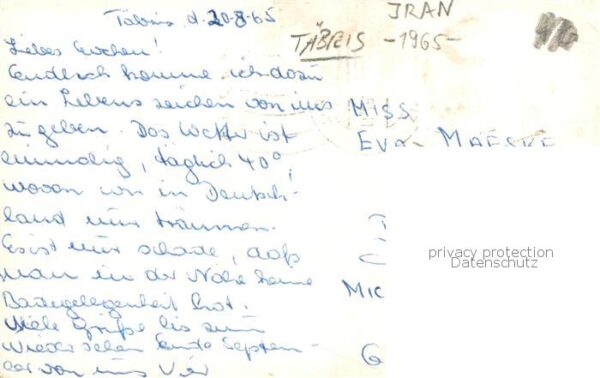 Täbris d. 20-8-65
IRAN
TÄBRIS -1965-
Liebes Evchen!
Endlich komme ich dazu
ein Lebenszeichen von uns
zu geben. Das Wetter ist
einmalig, täglich 40°!
wovon wir in Deutsch-
land nur träumen.
Es ist nur schade, daß
man in der Nähe keine
Badegelegenheit hat.
Viele Grüße bis zum
Wiedersehen Ende Septem-
ber von uns Vier
MISS
EVA MAESKE
MIC
G
privacy protection
Datenschutz